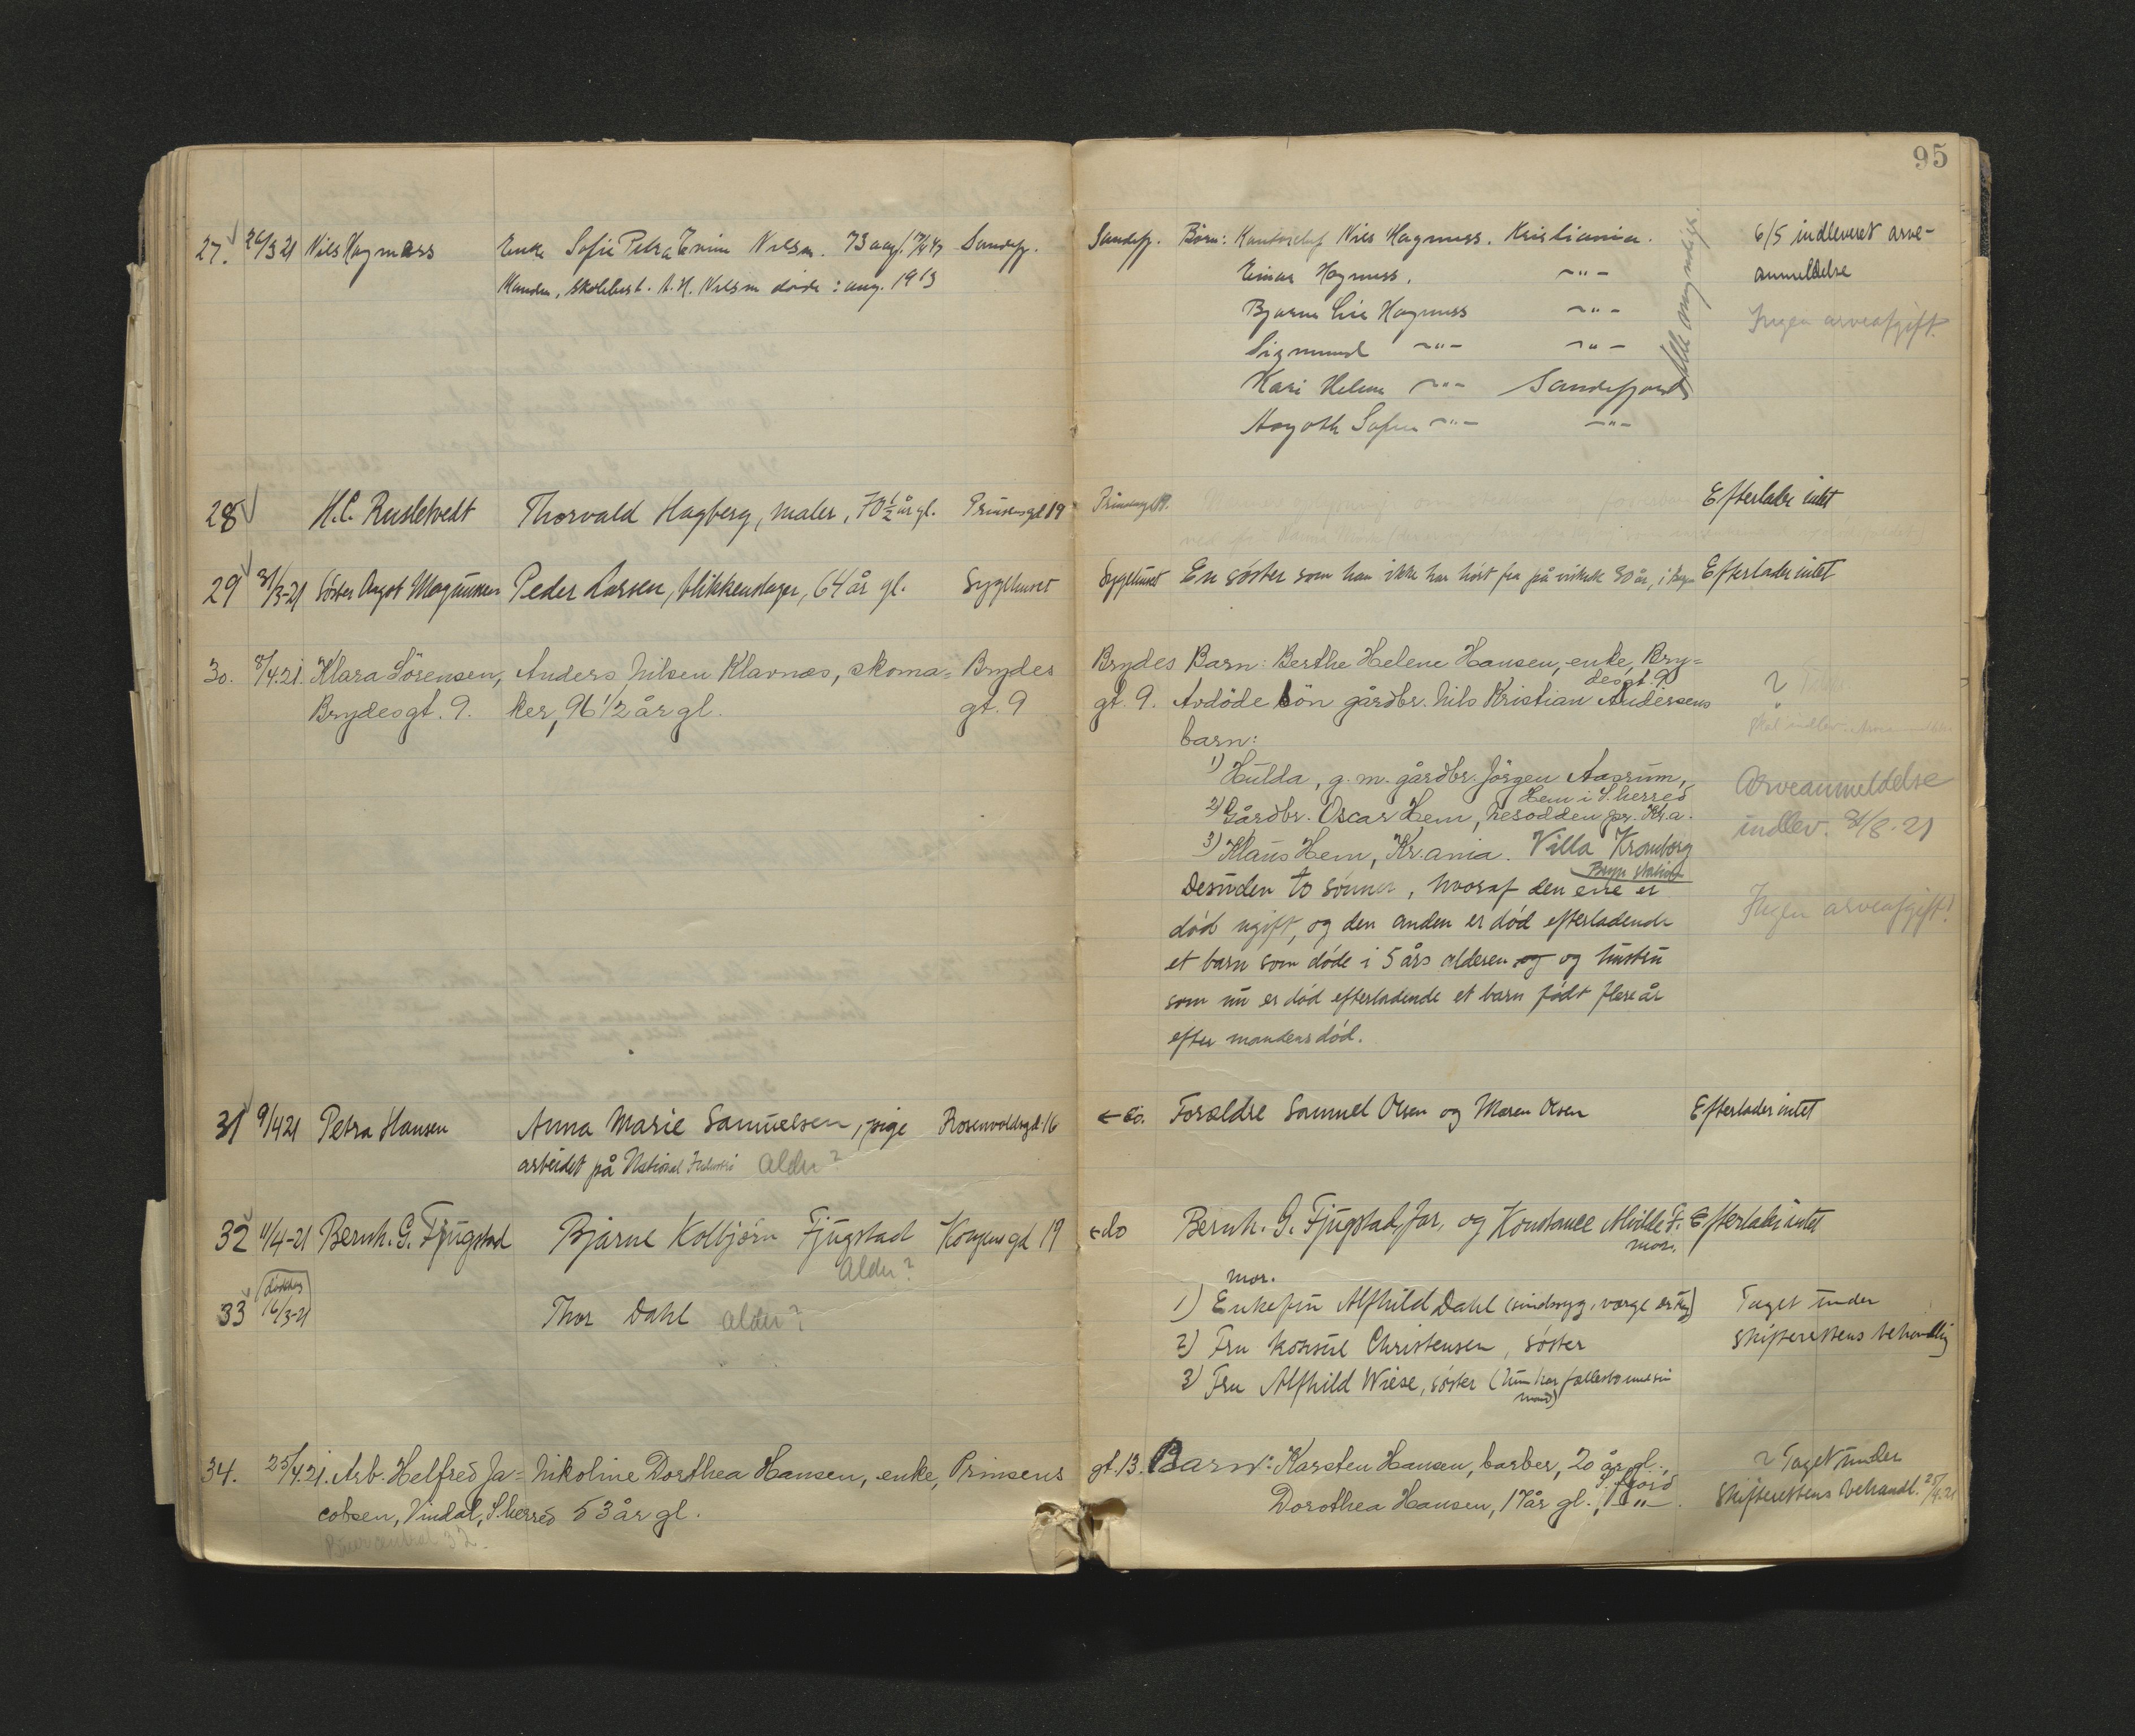 95
27. 26/3 21 Nils Hagness Enke Sofie Petra Nilsen. 73 aar Sandefj. Sandefj. Børn: Kontorchef Nils Hagness. Kristiania. 6/5 indleveret arve-
Manden, skolebest. A. H. Nilsen døde: aug. 1913 Einar Hagness. -"- anmeldelse
Bjarne Hagness -"- Ingen arveafgift.
Sigmund -"- -"-
Kari Helene -"- Sandefjord
Aagoth -"- -"-
Alle myndige.
28 H.C. Thorvald Hagberg, maler, 70 1/2 år gl. Prinsensgd 19 Prinsensgd 19. Efterlader intet
29 31/3-21 Søster Aagot Magnussen Peder Larsen, blikkenslager, 64 år gl. Sygehuset Sygehuset En søster som han ikke har hört fra på 30 år, i Efterlader intet
30. 8/4.21. Klara Sörensen, Anders Nilsen Klavnæs, skoma= Brydes Brydes Barn: Berthe Helene Hansen, enke, Bry=
desgt. 9
Brydesgt. 9. ker, 96 1/2 år gl. gt. 9 gt. 9. Avdöde sön gårdbr. Nils Kristian Andersens
barn:
1) Hulda, g. m. gårdbr. Jörgen Aasrum, Arveanmeldelse
Hem i S. herred
2) Gårdbr. Oscar Hem, Nesodden pr. Kr.a. indlev. 31/8.21
3) Klaus Hem, Kr.ania. Villa Kronborg
Bryn station
Desuden to sønner, hvoraf den ene er
død ugift, og den anden er død efterladende Ingen arveafgift!
et barn som døde i 5 års alderen og og hustru
som nu er død efterladende et barn født flere år
efter mandens død.
31 9/4 21 Petra Hansen Anna Marie Samuelsen, pige Rosenvoldsgd. 16 ← do. Forældre Samuel Olsen og Maren Olsen Efterlader intet
arbeidet på National Industri Alder?
32 11/4-21 Bernh. G. Fjugstad Bjarne Kolbjörn Fjugstad Kongensgd 19 ← do Bernh. G. Fjugstad, far, og Konstance Mathilde F. Efterlader intet
mor.
Alder?
mor.
33 16/3-21 Thor Dahl Alder? 1) Enkefru Alfhild Dahl (sindssyg, værge Taget under
2) Fru konsul Christensen, søster skifterettens behandling
3) Fru Alfhild Wiese, søster (hun har fællesbo med sin
mand)
34. 25/4.21. Arb. Helfred Ja= Nikoline Dorthea Hansen, enke, Prinsens gt. 13. Barn: Karsten Hansen, barber, 20 år gl., Taget under
S. fjord
cobsen, Vindal, S.herred 53 år gl. Dorothea Hansen, 17 år gl., -"-. skifterettens behandl. 25/4.21